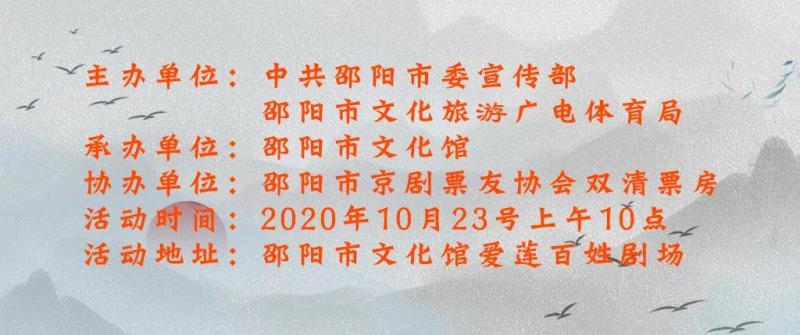 主办单位：中共邵阳市委宣传部
邵阳市文化旅游广电体育局
承办单位：邵阳市文化馆
协办单位：邵阳市京剧票友协会双清票房
活动时间：2020年10月23号上午10点
活动地址：邵阳市文化馆爱莲百姓剧场